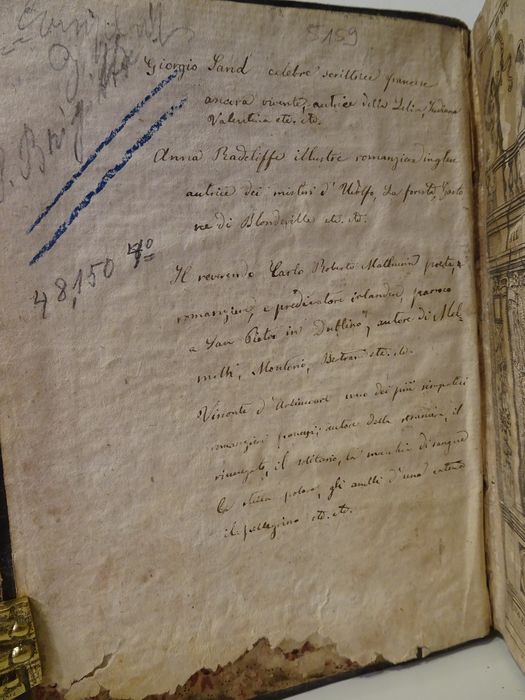 5159
Giorgio Sand celebre scrittrice francese
ancora vivente, autrice della Lelia, Indiana
Valentina etc. etc.
Anna Radcliffe illustre romanziera inglese
autrice dei misteri d'Udolfo, La foresta, Gasto
ne di Blondeville etc. etc.
48,150
Il reverendo Carlo Roberto Mathurin poeta,
romanziere e predicatore irlandese, parroco
a San Pietro in Dublino, autore di Mel
moth, Montorio, Bertram etc. etc.
Visconte d'Arlincourt uno dei più simpatici
romanzieri francesi; autore della straniera, il
rinnegato, il solitario, la macchia di sangue
la stella polare, gli anelli d'una catena
il pellegrino etc. etc.